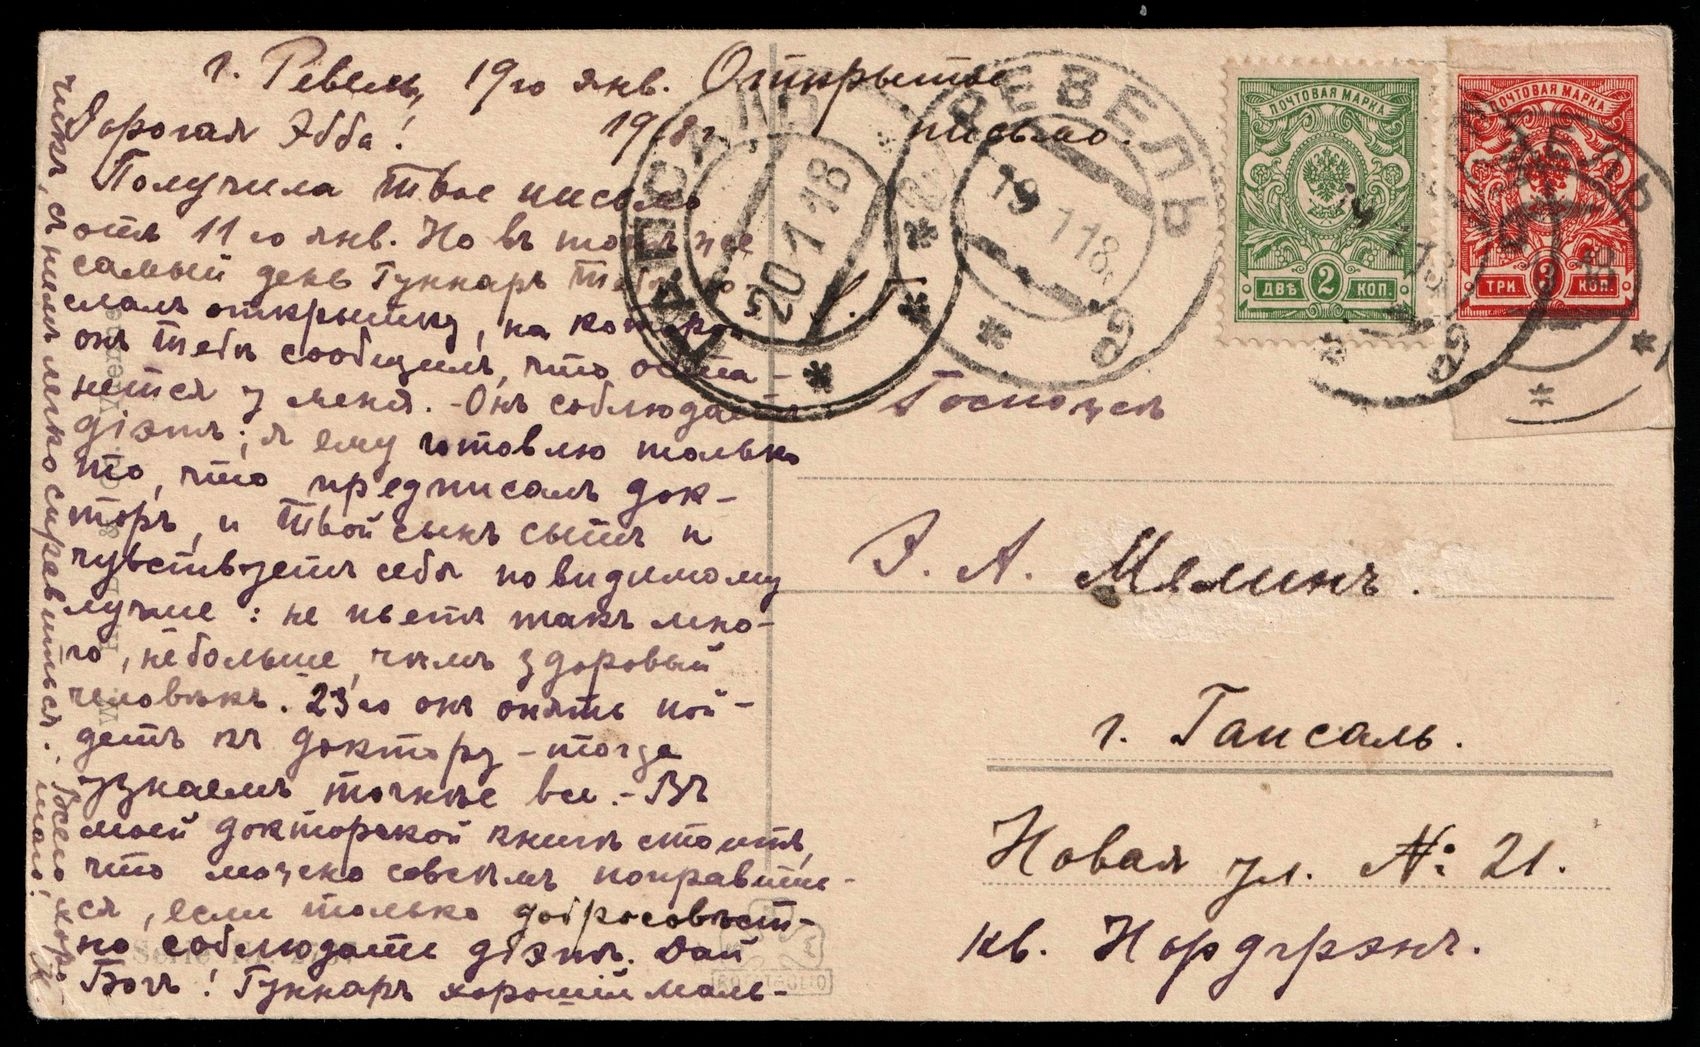 г. Ревель, 19го янв. Открытое
1918г. письмо.
Дорогая Эбба!
Получила твое письмо
отъ 11го янв. Но въ тотъ же
самый день Гуннаръ тебѣ по-
слалъ открытку, на которой
онъ тебѣ сообщилъ, что оста-
нется у меня. - Онъ соблюдаетъ
діэтъ; я ему готовлю только
то, что предписалъ док-
торъ, и твой сынъ сытъ и
чувствуетъ себя повидимому
лучше: не пьетъ такъ мно-
го, небольше, чѣмъ здоровый
человѣкъ. 23го онъ опять пой-
детъ къ доктору - тогда
узнаемъ точнѣе все. - Въ
моей докторской книгѣ стоитъ,
что можно совсѣмъ поправить-
ся, если только добросовѣст-
но соблюдать діэтъ. Дай
Богъ! Гуннаръ хорошій маль-
чикъ, съ нимъ легко справиться. - Всего хоро-
шаго!
РЕВЕЛЬ
19 1 18
20 1 18
ПОЧТОВАЯ МАРКА
ДВѢ 2 КОП.
ПОЧТОВАЯ МАРКА
ТРИ 3 КОП.
Госпожѣ
Э. А. Мялинъ.
г. Гапсаль.
Новая ул. №: 21.
кв. Нордгрэнъ.